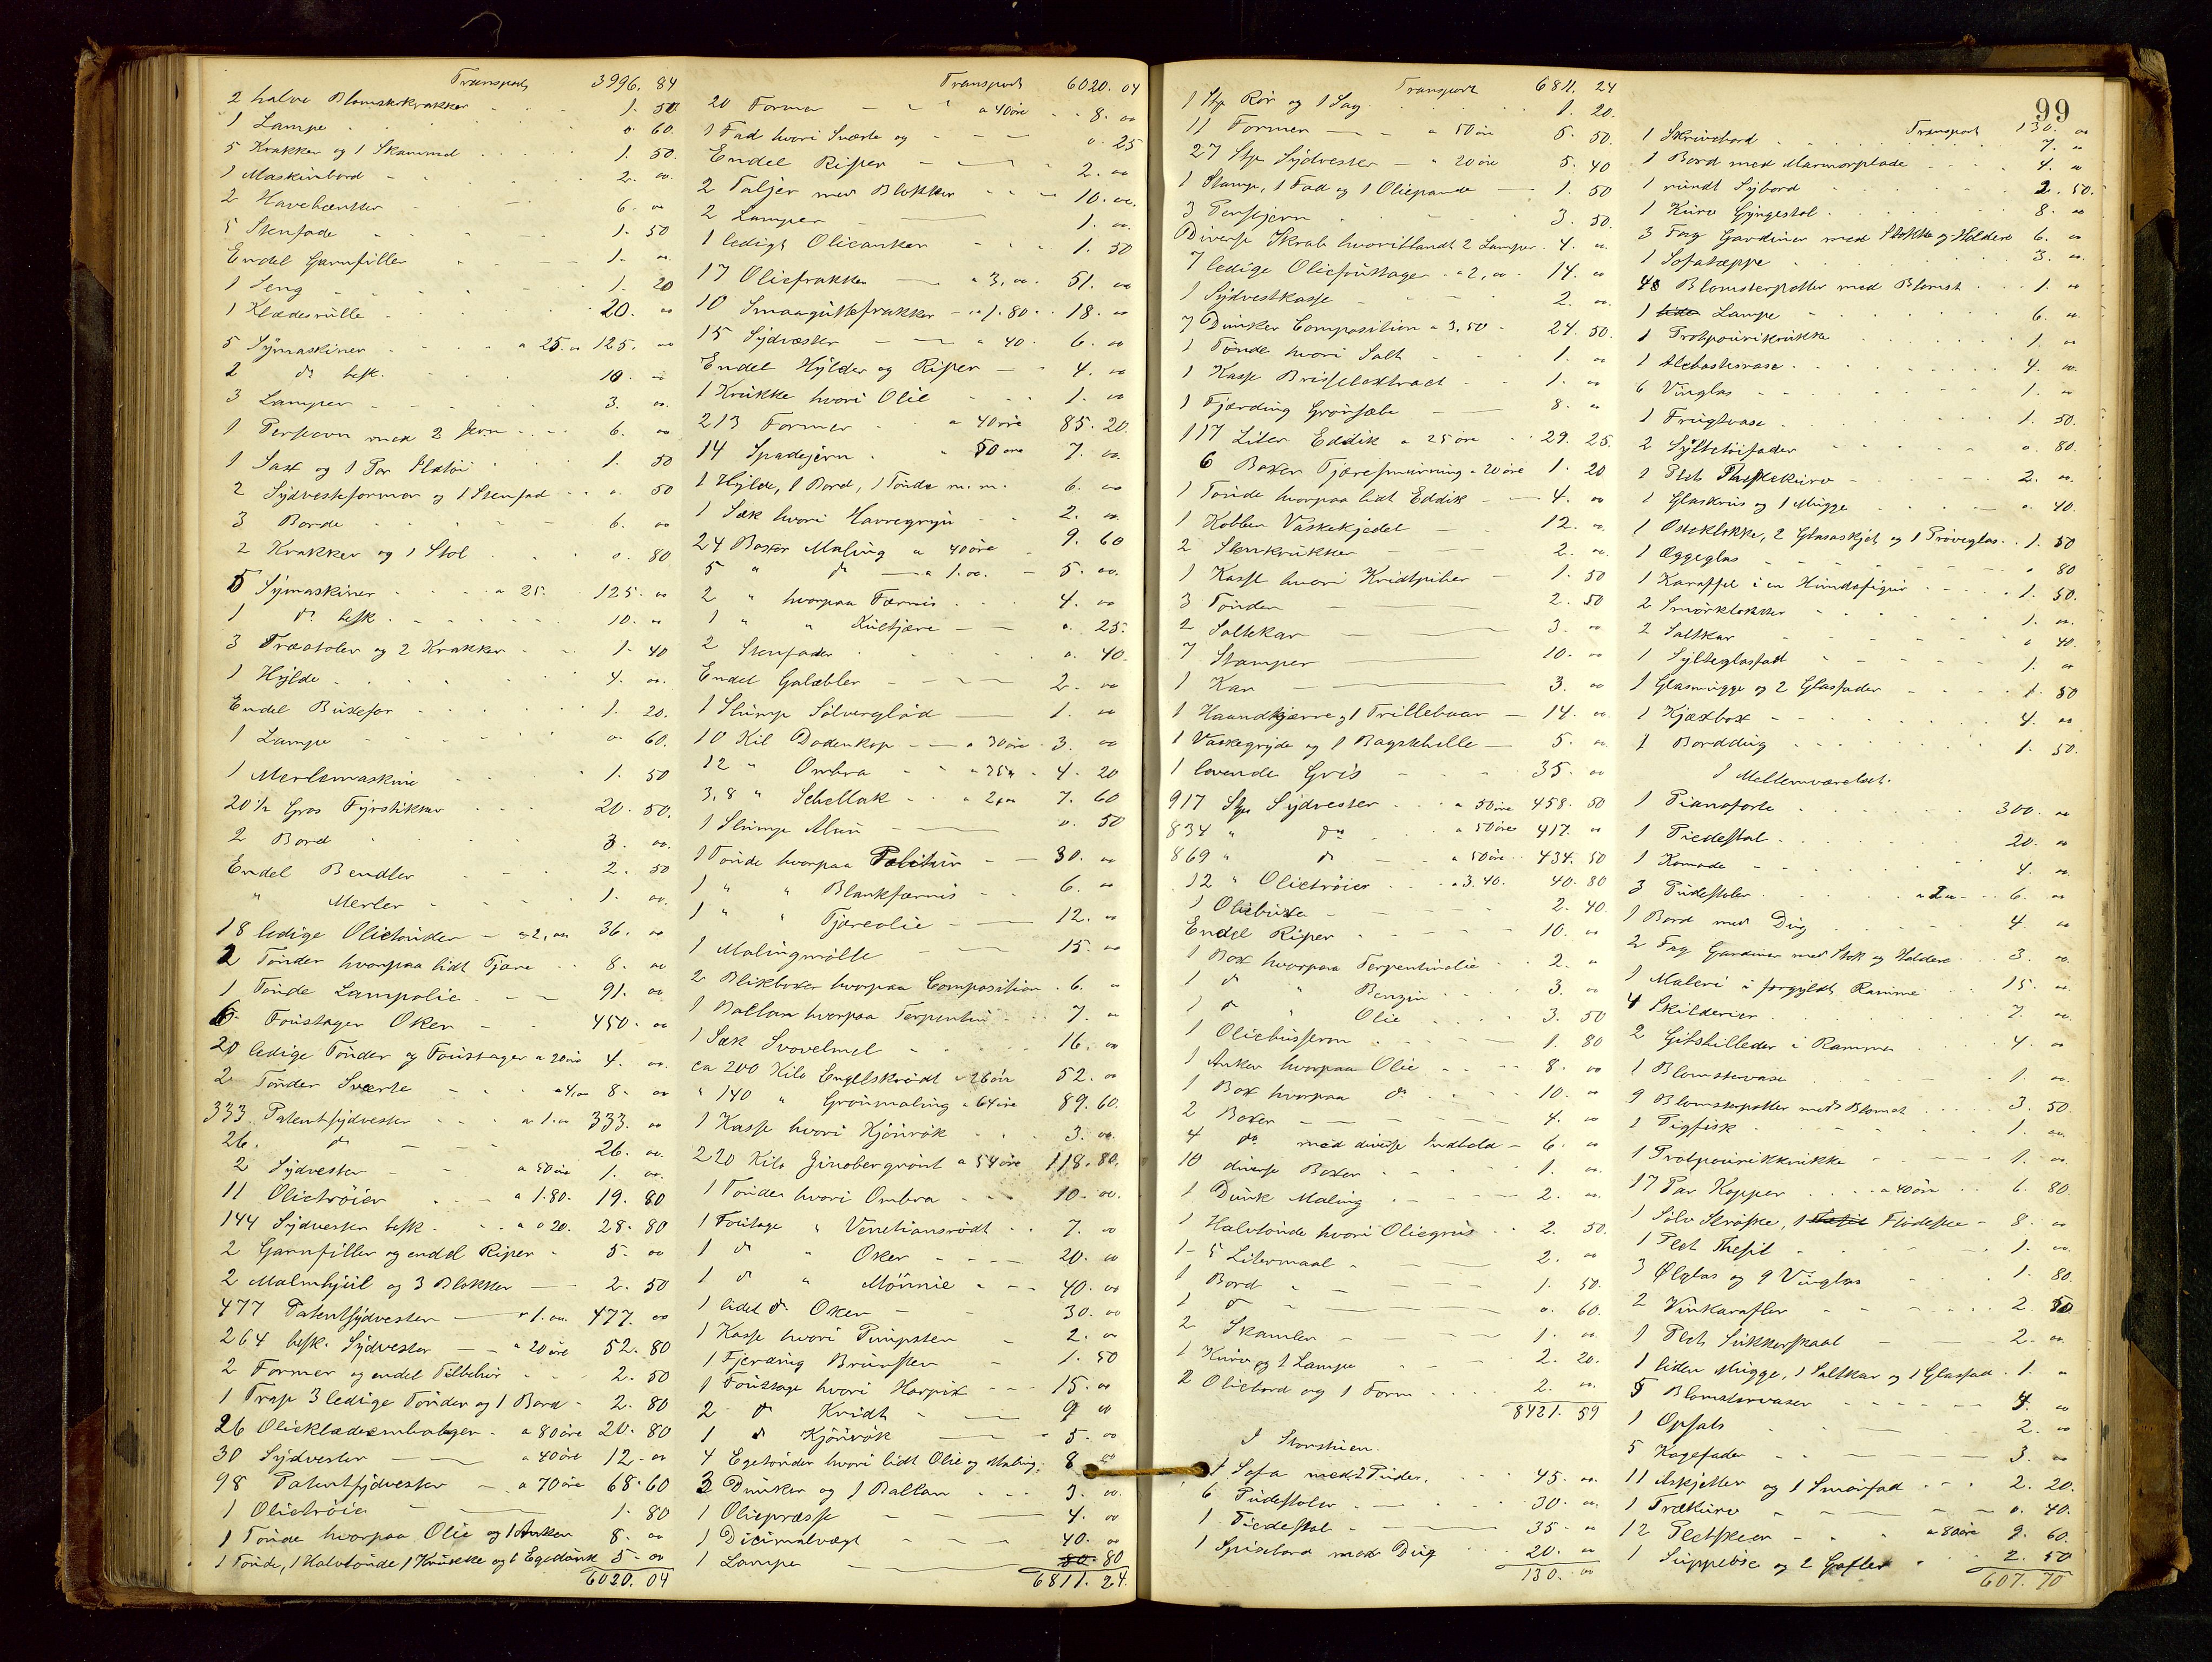 Transport 3996. 84
2 halve Blomsterkrakker 1. 50
1 Lampe o. 60.
5 Krakker og 1 Skammel 1. 50.
1 Maskinbord 2. oo.
2 Havebænker 6. oo
5 Stenfade 1. 50
Endel Garnfiller 1. oo.
1 Seng 1. 20
1 Klædesrulle 20. oo
5 Symaskiner a 25. oo 125. oo
2 do besk. 10. oo
3 Lamper 3. oo.
1 Persovn med 2 Jern 6. oo
1 Sax og 1 Par 1. 50
2 Sydvesteformer og 1 Stenfad o. 50
3 Borde 6. oo
2 Krakker og 1 Stol o. 80
5 Symaskiner a 25. 125. oo
1 do besk. 10. oo
3 Træstoler og 2 Krakker 1. 40
1 Hylde 4. oo.
Endel Buxefor 1. 20.
1 Lampe o. 60.
1 Merlemaskine 1. 50
20 1/2 Gros Fyrstikker 20. 50.
2 Bord 3. oo.
Endel Bendler 2. 50
" Merler 1. oo.
18 ledige Olietønder a 2,oo 36. oo
2 Tønder hvorpaa lidt Tjære 8. oo
1 Tønde Lampolie 91. oo
6 Foustager Oker 450. oo
20 ledige Tønder og Foustager a 20 øre 4. oo.
2 Tønder Sværte a 4,oo 8. oo
333 Patentsydvester a 1.oo 333. oo
26. do 26. oo.
2 Sydvester a 50 øre 1. oo.
11 Olietrøier a 1.80. 19. 80
144 Sydvester besk. a o 20. 28. 80
2 Garnfiller og endel Riper 5. oo
2 Malmhjul og 3 Blokker 2. 50
477 Patentsydvester a 1.oo. 477. oo
264 besk. Sydvester a 20 øre 52. 80
2 Former og endel Tilbehør 2. 50
1 Trap 3 ledige Tønder og 1 Bord 2. 80
26 Olieklædeemballager a 80 øre 20. 80
30 Sydvester a 40 øre 12. oo
98 Patentsydvester a 70 øre 68. 60
1 Olietrøie 1. 80
1 Tønde hvorpaa Olie og 1 Anker 8. oo
1 Tønde, 1 Halvtønde 1 Krukke og 1 Egedunk 5. oo
6020. 04
Transport 6020. 04
20 Former a 40 øre 8. oo
1 Fad hvori Sværte og o. 25
Endel Riper 2. oo
2 Taljer med Blokker 10. oo.
2 Lamper 1. oo.
1 ledigt Olieanker 1. 50
17 Oliefrakker a 3,oo. 51. oo
10 Smaaguttefrakker a 1.80. 18. oo
15 Sydvester a 40. 6. oo
Endel Hylder og Riper 4. oo
1 Krukke hvori Olie 1. oo
213 Former a 40 øre 85. 20.
14 Spadejern " 50 øre 7. oo.
1 Hylde, 1 Bord, 1 Tønde m. m. 6. oo
1 Sæk hvori Havregryn 2. oo.
24 Boxer Maling a 40 øre 9. 60
5 " do a 1.oo. 5. oo.
2 " hvorpaa Færnis 4. oo
1 " " Kultjære o. 25.
2 Stenfade o. 40.
Endel Galæbler 2. oo
1 Slump Sølverglød 1. oo
10 Kil Dodenkop a 30 øre 3. oo
12 " Ombra a 35 " 4. 20
3,8 " Schellak a 2,oo 7. 60
1 Slump Alun o. 50
1 Tønde hvorpaa Politur 30. oo
1 " " Blankfærnis 6. oo
1 " " Tjæreolie 12. oo
1 Malingmølle 15. oo
2 Blikboxer hvorpaa Composition 6. oo
1 Ballon hvorpaa Terpentin 7. oo
1 Sæk Svovelmel 16. oo
ca 200 Kilo Engelskrødt a 26 øre 52. oo
" 140 " Grønmaling a 64 øre 89. 60.
1 Kasse hvori Kjønrøk 3. oo.
220 Kilo Zinobergrønt a 54 øre 118. 80.
1 Tønder hvori Ombra 10. oo.
1 Foustage " Venetiansrødt 7. oo
1 do " Oker 20. oo
1 do " Mønnie 40. oo
1 lidet do Oker 30. oo
1 Kasse hvori Pimpsten 2. oo
1 Fjerding Brunsten 1. 50
1 Foustage hvori Harpix 15. oo
2 do Kridt 9 oo
1 do Kjønrøk 5. oo
4 Egetønder hvori lidt Olie og Maling. 8 oo
3 Dunker og 1 Ballon 3. oo.
1 Oliepresse 4. oo
1 Dicimalvægt 40. oo
1 Lampe 80
6811. 24.
Transport 6811. 24
1 Stp Rør og 1 Sag 1. 20.
11 Former a 50 øre 5. 50.
27 Stp Sydvester " 20 øre 5. 40
1 Stamp, 1 Fad og 1 Oliepande 1. 50
3 Persejern 3. 50.
Diverse Skrab hvoriblandt 2 Lamper. 4. oo.
7 ledige Oliefoustager a 2,oo 14. oo
1 Sydvestkasse 2. oo.
7 Dunker Composition a 3,50 24. 50.
1 Tønde hvori Salt 1. oo
1 Kasse Brisselextract 1. oo
1 Fjærding Grønsæbe 8. oo
117 Liter Eddik a 25 øre 29. 25.
6 Boxer Tjæresmurning a 20 øre 1. 20
1 Tønde hvorpaa lidt Eddik 4. oo
1 Kobber Vaskekjedel 12. oo.
2 Stenkrukker 2. oo.
1 Kasse hvori Kridtpiber 1. 50
3 Tønder 2. 50
2 Saltekar 3. oo
7 Stamper 10. oo
1 Kar 3. oo
1 Haandkjærre og 1 Trillebaar 14. oo.
1 Vaskegryde og 1 Bagstehelle 5. oo.
1 levende Gris 35. oo
917 Stp Sydvester a 50 øre 458. 50
834 " do a 50 øre 417. oo
869 " do a 50 øre 434. 50
12 " Olietrøier a 3.40. 40. 80
1 Oliebuxe 2. 40.
Endel Riper 10. oo
1 Box hvorpaa Terpentinolie 2. oo
1 do " Benzin 3. oo
1 do " Olie 3. 50
1 Oliebusseron 1. 80
1 Anker hvorpaa Olie 8. oo
1 Box hvorpaa do 10. oo
2 Boxer 4. oo
4 do med diverse Indhold 6. oo
10 diverse Boxer 1. oo.
1 Dunk Maling 2. oo.
1 Halvtønde hvori Oliegrus 2. 50.
1 5 Litermaal 2. oo
1 Bord 1. 50.
1 do o. 60.
2 Skamler 1. oo.
1 Kurv og 1 Lampe 2. 20.
2 Oliebord og 1 Form 2. oo.
8421. 59
I Storstuen.
1 Sofa med 2 Puder. 45. oo.
6 Pudestoler 30. oo.
1 Piedestal 35. oo
1 Spisebord med Dug 20. oo
130. oo
99
Transport 130. oo
1 Skrivebord 7. oo
1 Bord med Marmorplade 4. oo
1 rundt Sybord 2. 50.
1 Kurv Gyngestol 8. oo
3 Fag Gardiner med Stokke og Holdere 6. oo
1 Sofatæppe 3. oo.
48 Blomsterpotter med Blomst 1. oo
1 Lampe 6. oo.
1 Protpourrikrukke 1. oo
1 Alebastervase 4. oo.
6 Vinglas 1. oo
1 Frugtvase 1. 50.
2 Syltetøifader o. 80.
1 Plet kurv 2. oo.
1 Glaskrus og 1 Mugge o. 40.
1 Osteklokke, 2 Glasaskjet og 1 Prøveglas 1. 50
1 Æggeglas o 80
1 Karaffel i en Hundefigur 1. 50.
2 Smørklokker 1. oo.
2 Saltkar o 40.
1 Sylteglasfad 1. oo
1 Glasmugge og 2 Glasfader 1. 50
1 Kjæxbox 4. oo
1 Borddug 1. 50.
I Mellemværelset.
1 Pianoforte 300. oo
1 Piedestal 20. oo
1 Komode 4. oo.
3 Pudestoler a 2,oo 6. oo
1 Bord med Dug 4. oo
2 Fag Gardiner med Stok og Holdere 3. oo.
1 Maleri i forgyldt Ramme 15. oo
4 Skilderier 7. oo.
2 Gibsbilleder i Rammer 4. oo
1 Blomstervase 1. oo.
9 Blomsterpotter med Blomst 3. 50.
1 Pigfisk 1. oo.
1 Protpourrikrukke 1. oo
17 Par Kopper a 40 øre 6. 80.
1 Sølv Strøske, 1 Flødeske 8. oo
1 Plet Thesil 1. oo.
3 Ølglas og 9 Vinglas 1. 80.
2 Vinkarafler 2. 50
1 Plet Sukkerskaal 2. oo.
1 liden Mugge, 1 Saltkar og 1 Glasfad 1. oo
5 Blomstervaser 4. oo
1 Opsats 2. oo
5 Kagefader 3. oo
11 Askjetter og 1 Smørfad 2. 20.
1 Trækurv o. 40.
12 Pletskeer a 80 øre 9. 60.
1 Suppeøse og 2 Gafler 2. 50
607. 70